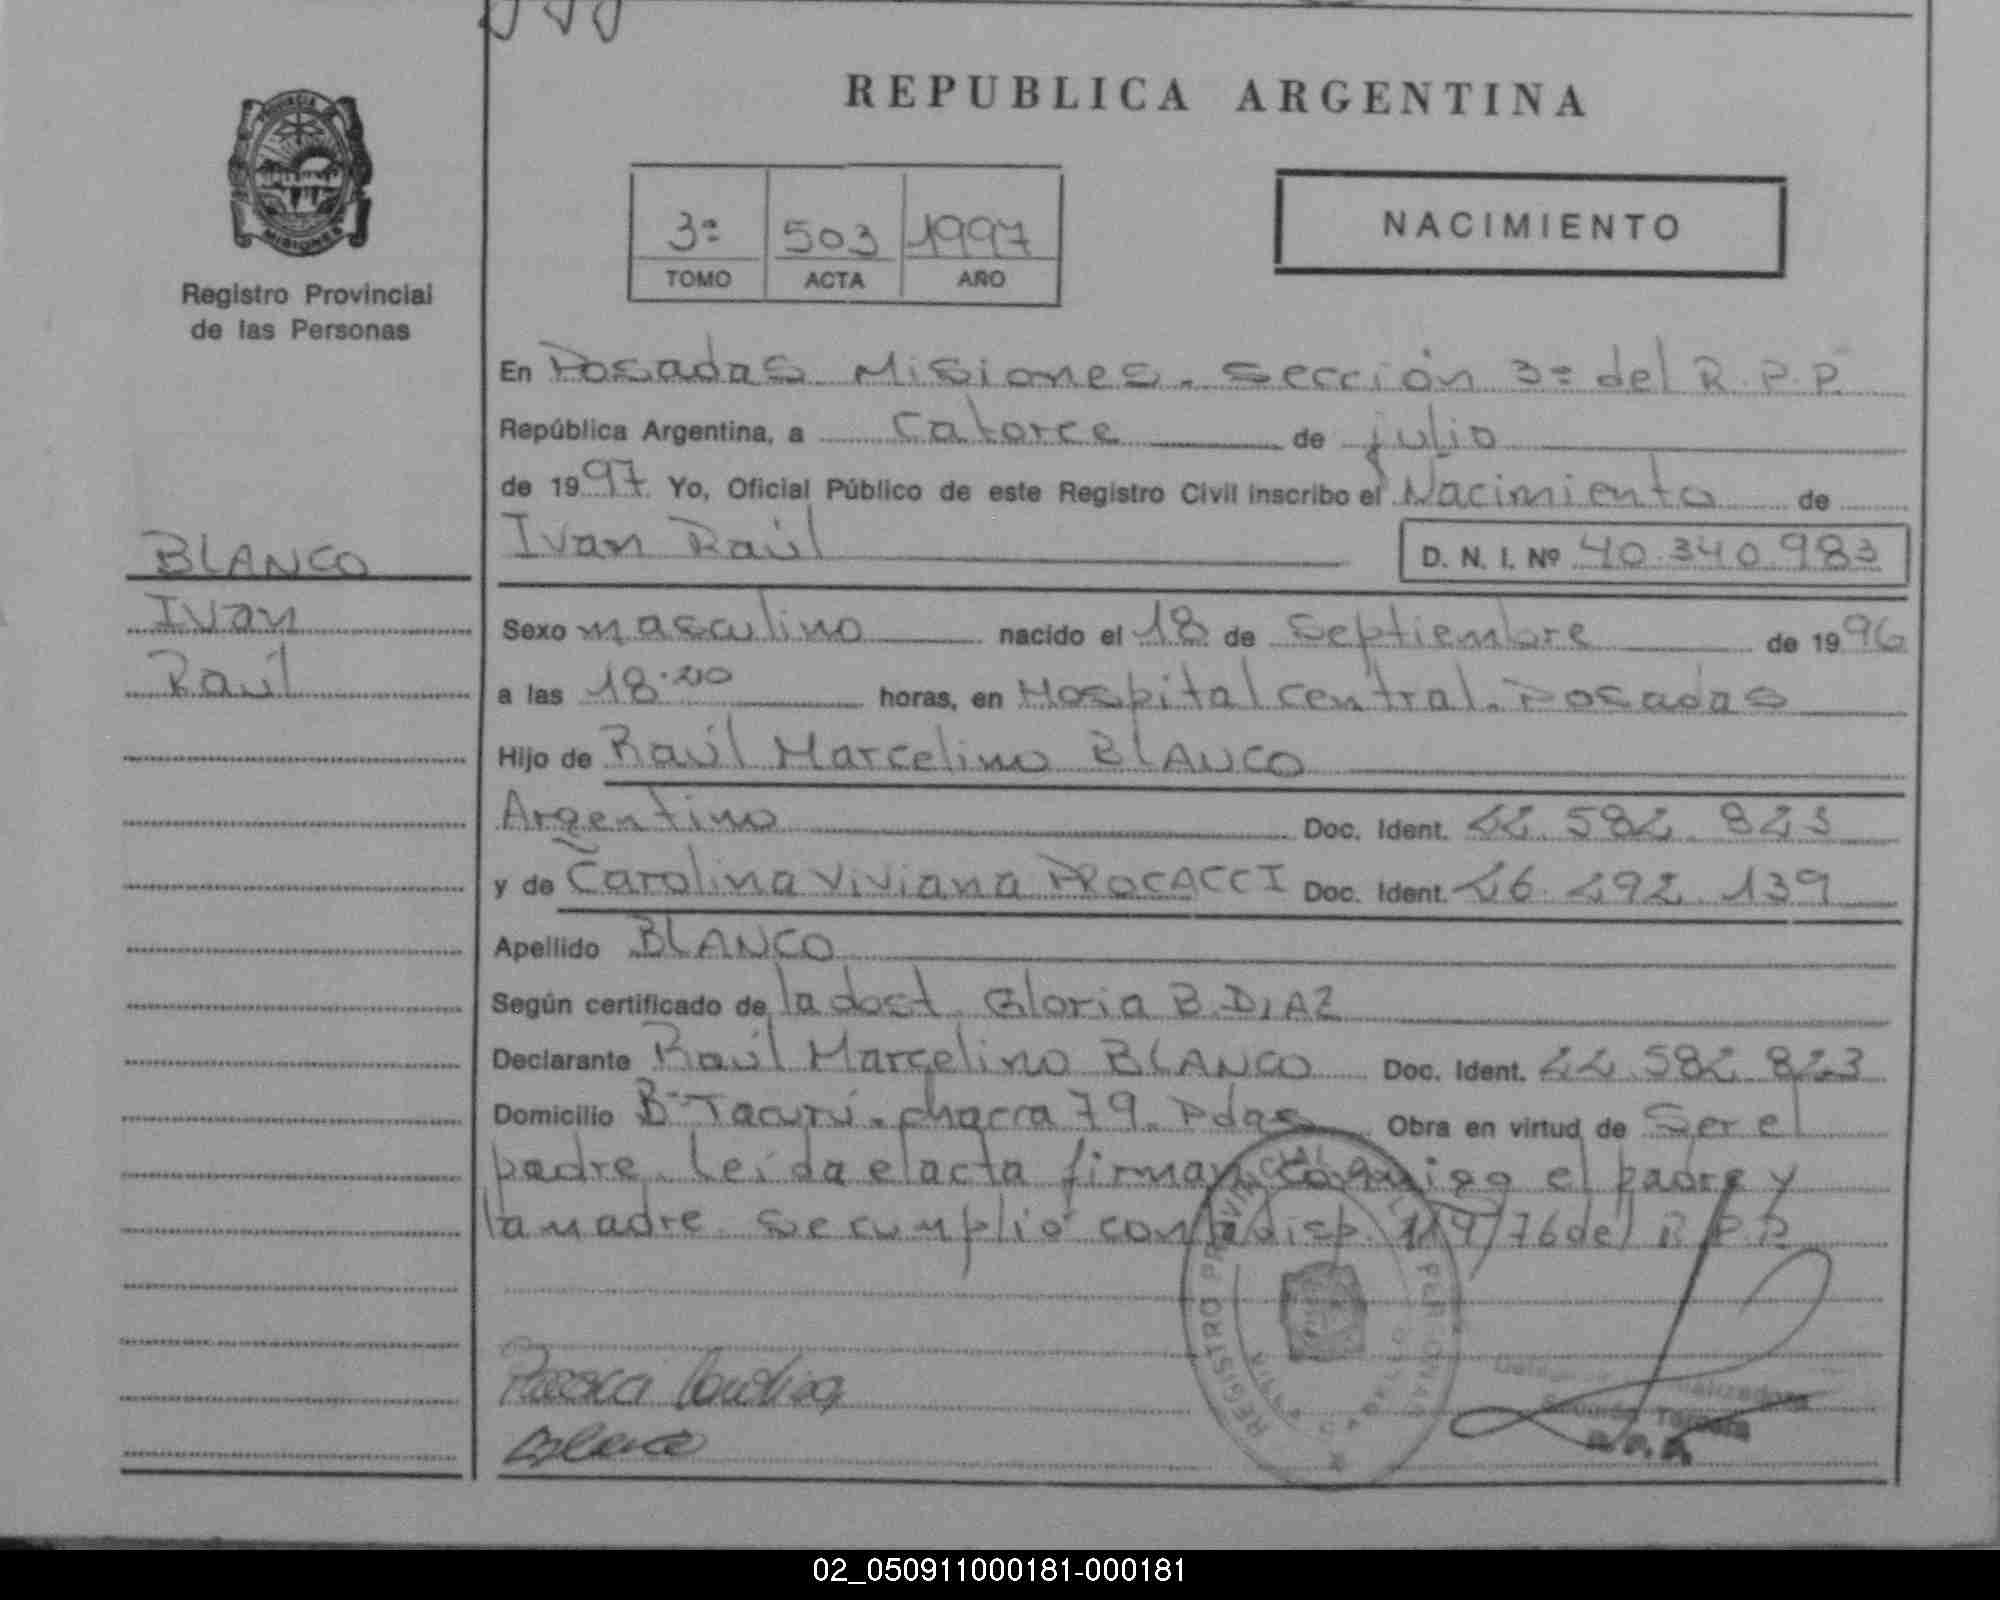 REPUBLICA ARGENTINA
PROVINCIA
MISIONES
Registro Provincial
de las Personas
3ª 503 1997
TOMO ACTA AÑO
NACIMIENTO
En Posadas Misiones. Sección 3ª del R.P.P.
República Argentina, a catorce de julio
de 1997 Yo, Oficial Público de este Registro Civil inscribo el Nacimiento de
Ivan Raúl D. N. I. Nº 40.340.983
BLANCO
Ivan
Raúl
Sexo masculino nacido el 18 de Septiembre de 1996
a las 18:20 horas, en Hospital central. Posadas
Hijo de Raúl Marcelino BLANCO
Argentino Doc. Ident. 22.582.823
y de Carolina Viviana PROCACCI Doc. Ident. 26.292.139
Apellido BLANCO
Según certificado de la dost. Gloria B. DIAZ
Declarante Raúl Marcelino BLANCO Doc. Ident. 22.582.823
Domicilio Bº Tacurú. chacra 79. Pdas Obra en virtud de Ser el
padre. Leída el acta firman conmigo el padre y
la madre. Se cumplió con la disp. 119/76 del R.P.P.
REGISTRO PROVINCIAL
Blanco
02_050911000181-000181